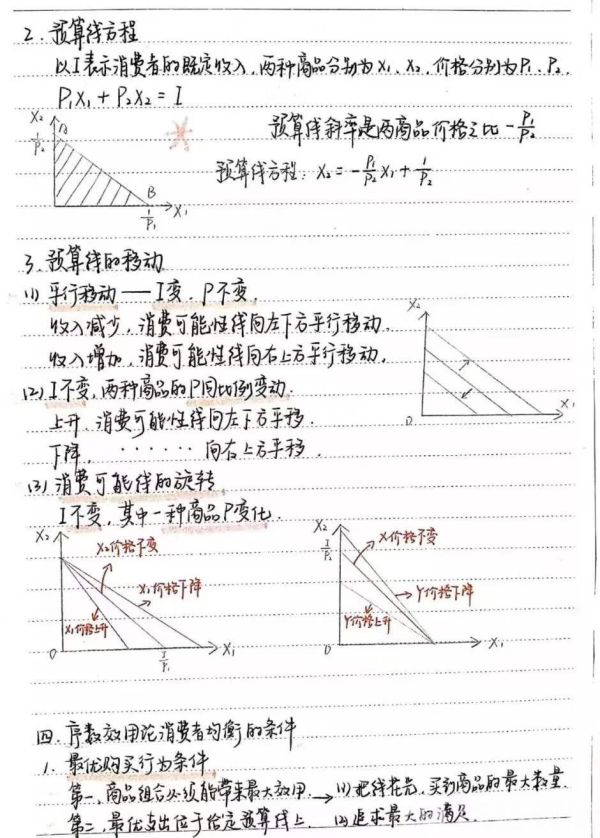 2. 预算线方程
以I表示消费者的既定收入, 两种商品分别为X₁、X₂, 价格分别为P₁、P₂.
P₁X₁ + P₂X₂ = I
X₂
I/P₂
A
B
I/P₁
X₁
预算线斜率是两商品价格之比 -P₁/P₂
预算线方程: X₂ = -P₁/P₂ X₁ + I/P₂
3. 预算线的移动
(1) 平行移动 —— I变, P不变.
收入减少, 消费可能性线向左下方平行移动.
收入增加, 消费可能性线向右上方平行移动.
X₂
0
X₁
(2) I不变, 两种商品的P同比例变动.
上升, 消费可能性线向左下方平移.
下降, ······ 向右上方平移.
(3) 消费可能线的旋转
I不变, 其中一种商品P变化.
X₂
X₂价格不变
X₁价格下降
X₁价格上升
0
I/P₁
X₁
X₂
I/P₂
X价格不变
Y价格下降
Y价格上升
0
X₁
四. 序数效用论消费者均衡的条件
1. 最优购买行为条件
第一, 商品组合必须能带来最大效用. → (1) 把钱花光, 买到商品的最大数量.
第二, 最优支出位于给定预算线上. (2) 追求最大的满足